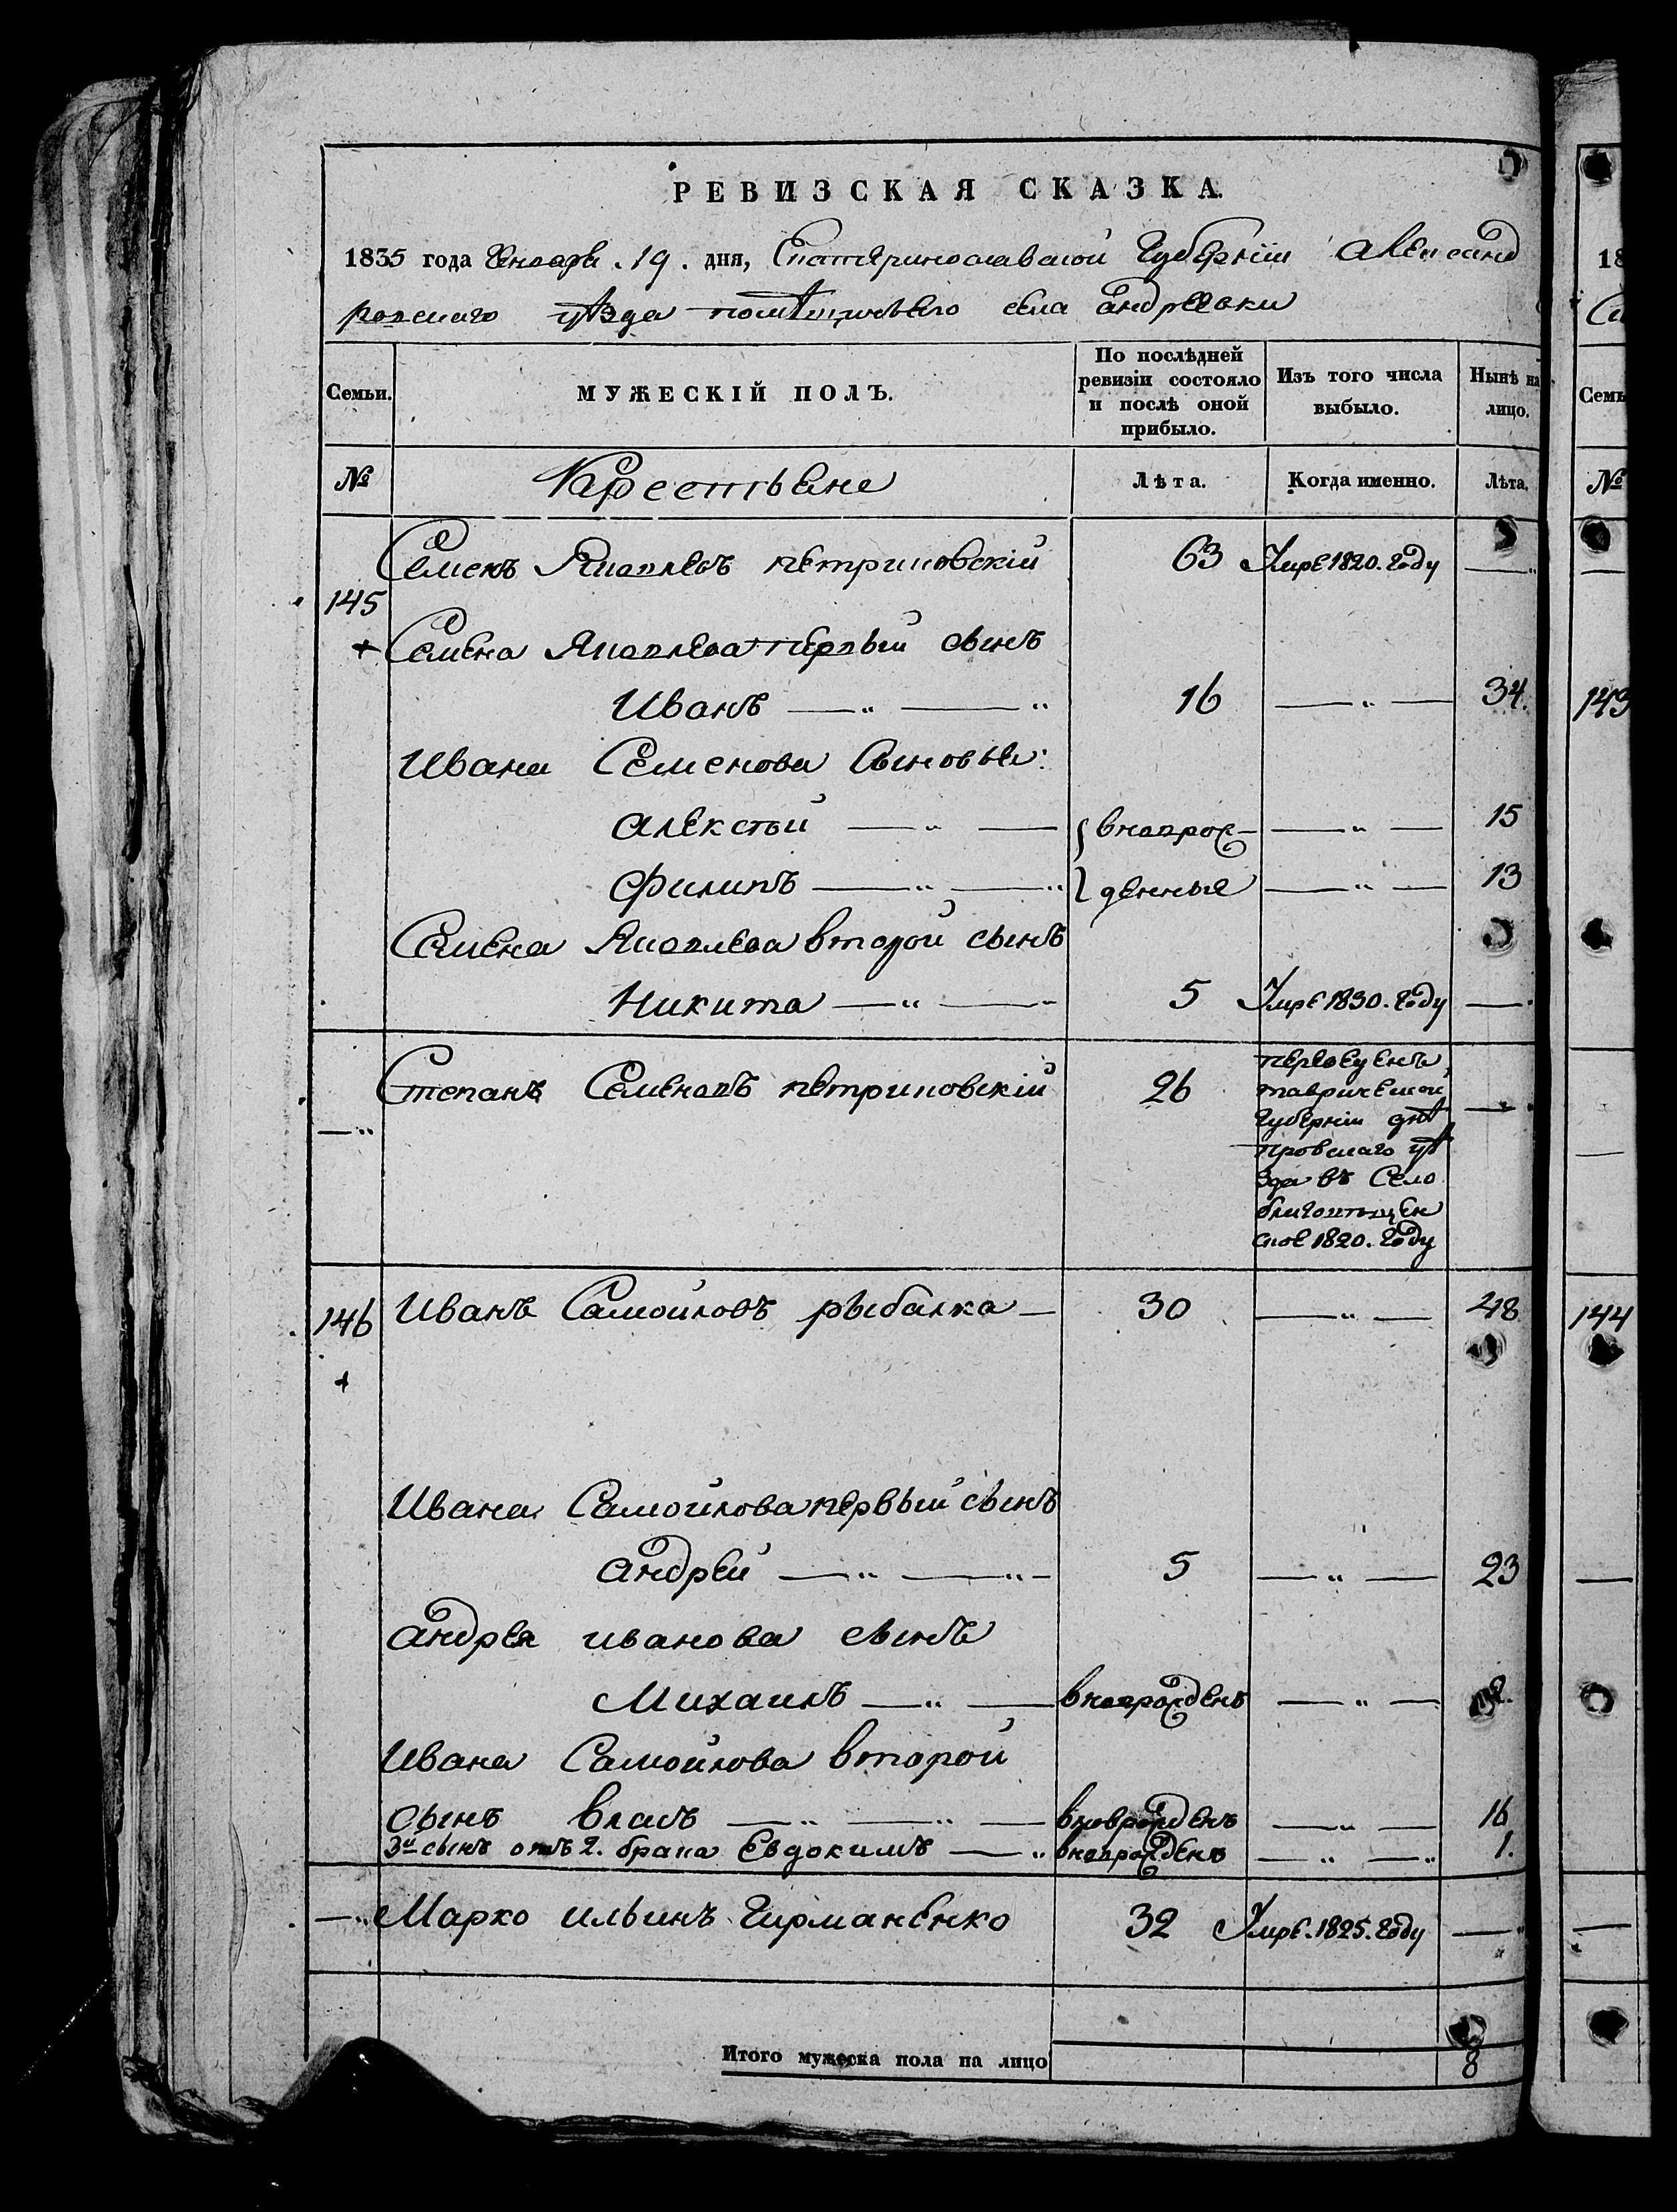 РЕВИЗСКАЯ СКАЗКА.
1835 года Генваря .19. дня, Екатеринославской Губерніи Александ
ровскаго уѣзда помѣщичьяго села Андреевки
Семьи.
МУЖЕСКІЙ ПОЛЪ.
По послѣдней ревизіи состояло и послѣ оной прибыло.
Изъ того числа выбыло.
Нынѣ на лицо.
№
Крестьяне
Лѣта.
Когда именно.
Лѣта.
Семенъ Яковлевъ Петриковскій 63 Умре 1820. Году —
145
+ Семена Яковлева первый сынъ
Иванъ — „ — „ 16 — „ — 34.
Ивана Семенова Сыновья:
Алексѣй — „ — вноврож- — „ — 15
Филипъ — „ — „ денные — „ — 13
Семена Яковлева второй сынъ
Никита — „ — 5 Умре 1830. Году —
— „ Степанъ Семеновъ Петриковскій 26 — „
переведенъ
таврической
Губерніи днѣ
провскаго уѣ
зда въ Село
благовѣщен
ское 1820. Году
146 Иванъ Самойловъ рыбалка — 30 — „ — 48
+
Ивана Самойлова первый сынъ
Андрей — „ — „ — 5 — „ — 23
Андрея иванова сынъ
Михаилъ — „ — вноврожденъ — „ — 2.
Ивана Самойлова второй
сынъ Власъ — „ — „ — вноврожденъ — „ — 16
3й сынъ отъ 2. брака Евдокимъ — „ вноврожденъ — „ — „ 1.
— „ Марко ильинъ Гирманенко 32 Умре. 1825. Году — „
Итого мужеска пола на лицо 8
18
Семь
№
143
144